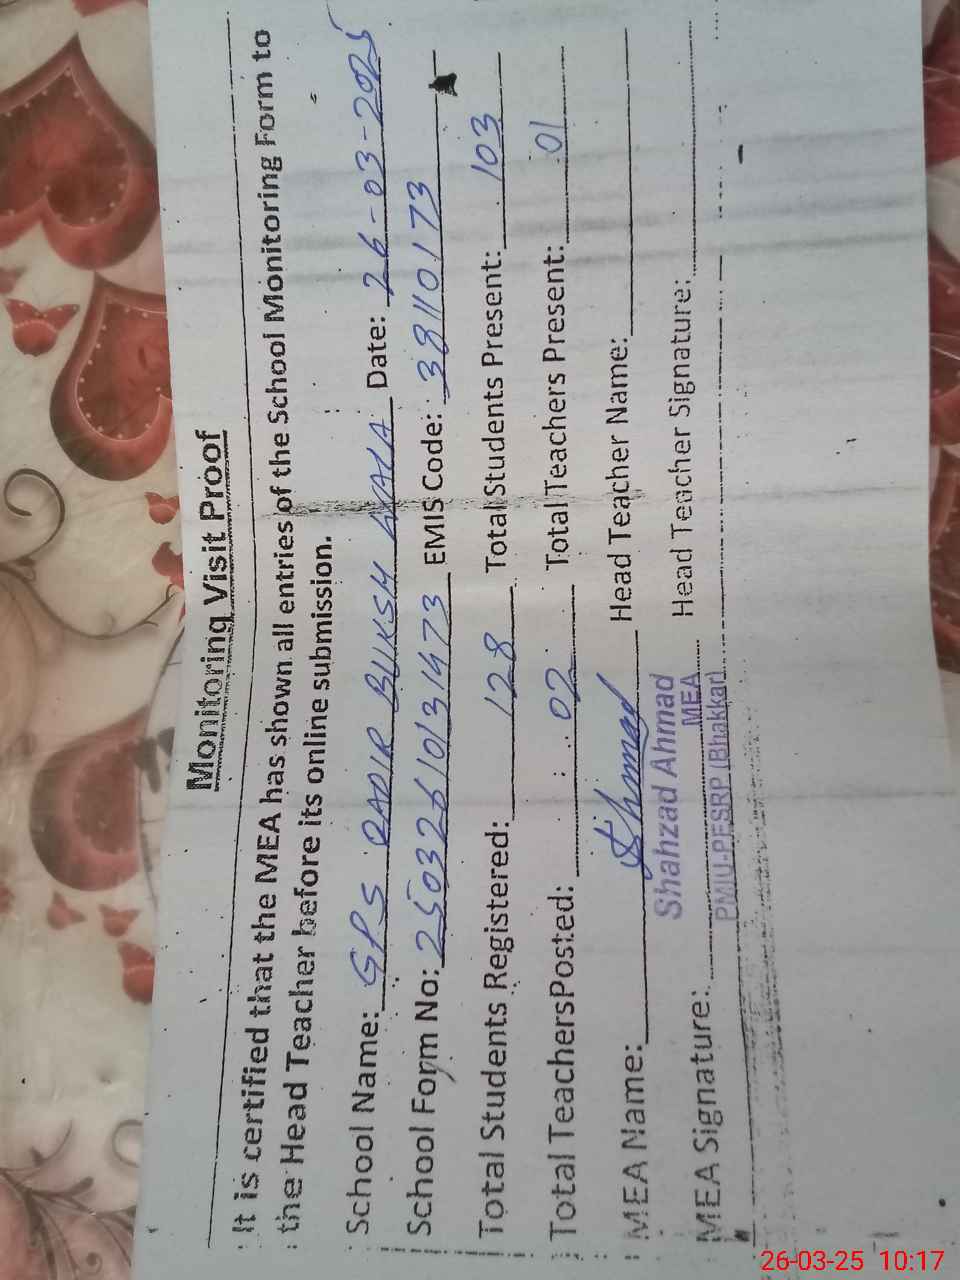 Monitoring Visit Proof
It is certified that the MEA has shown all entries of the School Monitoring Form to
the Head Teacher before its online submission.
School Name: GPS QADIR BUKSH WALA Date: 26-03-2025
School Form No: 25032610131473 EMIS Code: 38110173
Total Students Registered: 128 Total Students Present: 103
Total TeachersPosted: 02 Total Teachers Present: 01
MEA Name: Head Teacher Name:
Shahzad Ahmad
MEA
MEA Signature: Head Teacher Signature:
PMIU-PESRP (Bhakkar)
26-03-25 10:17